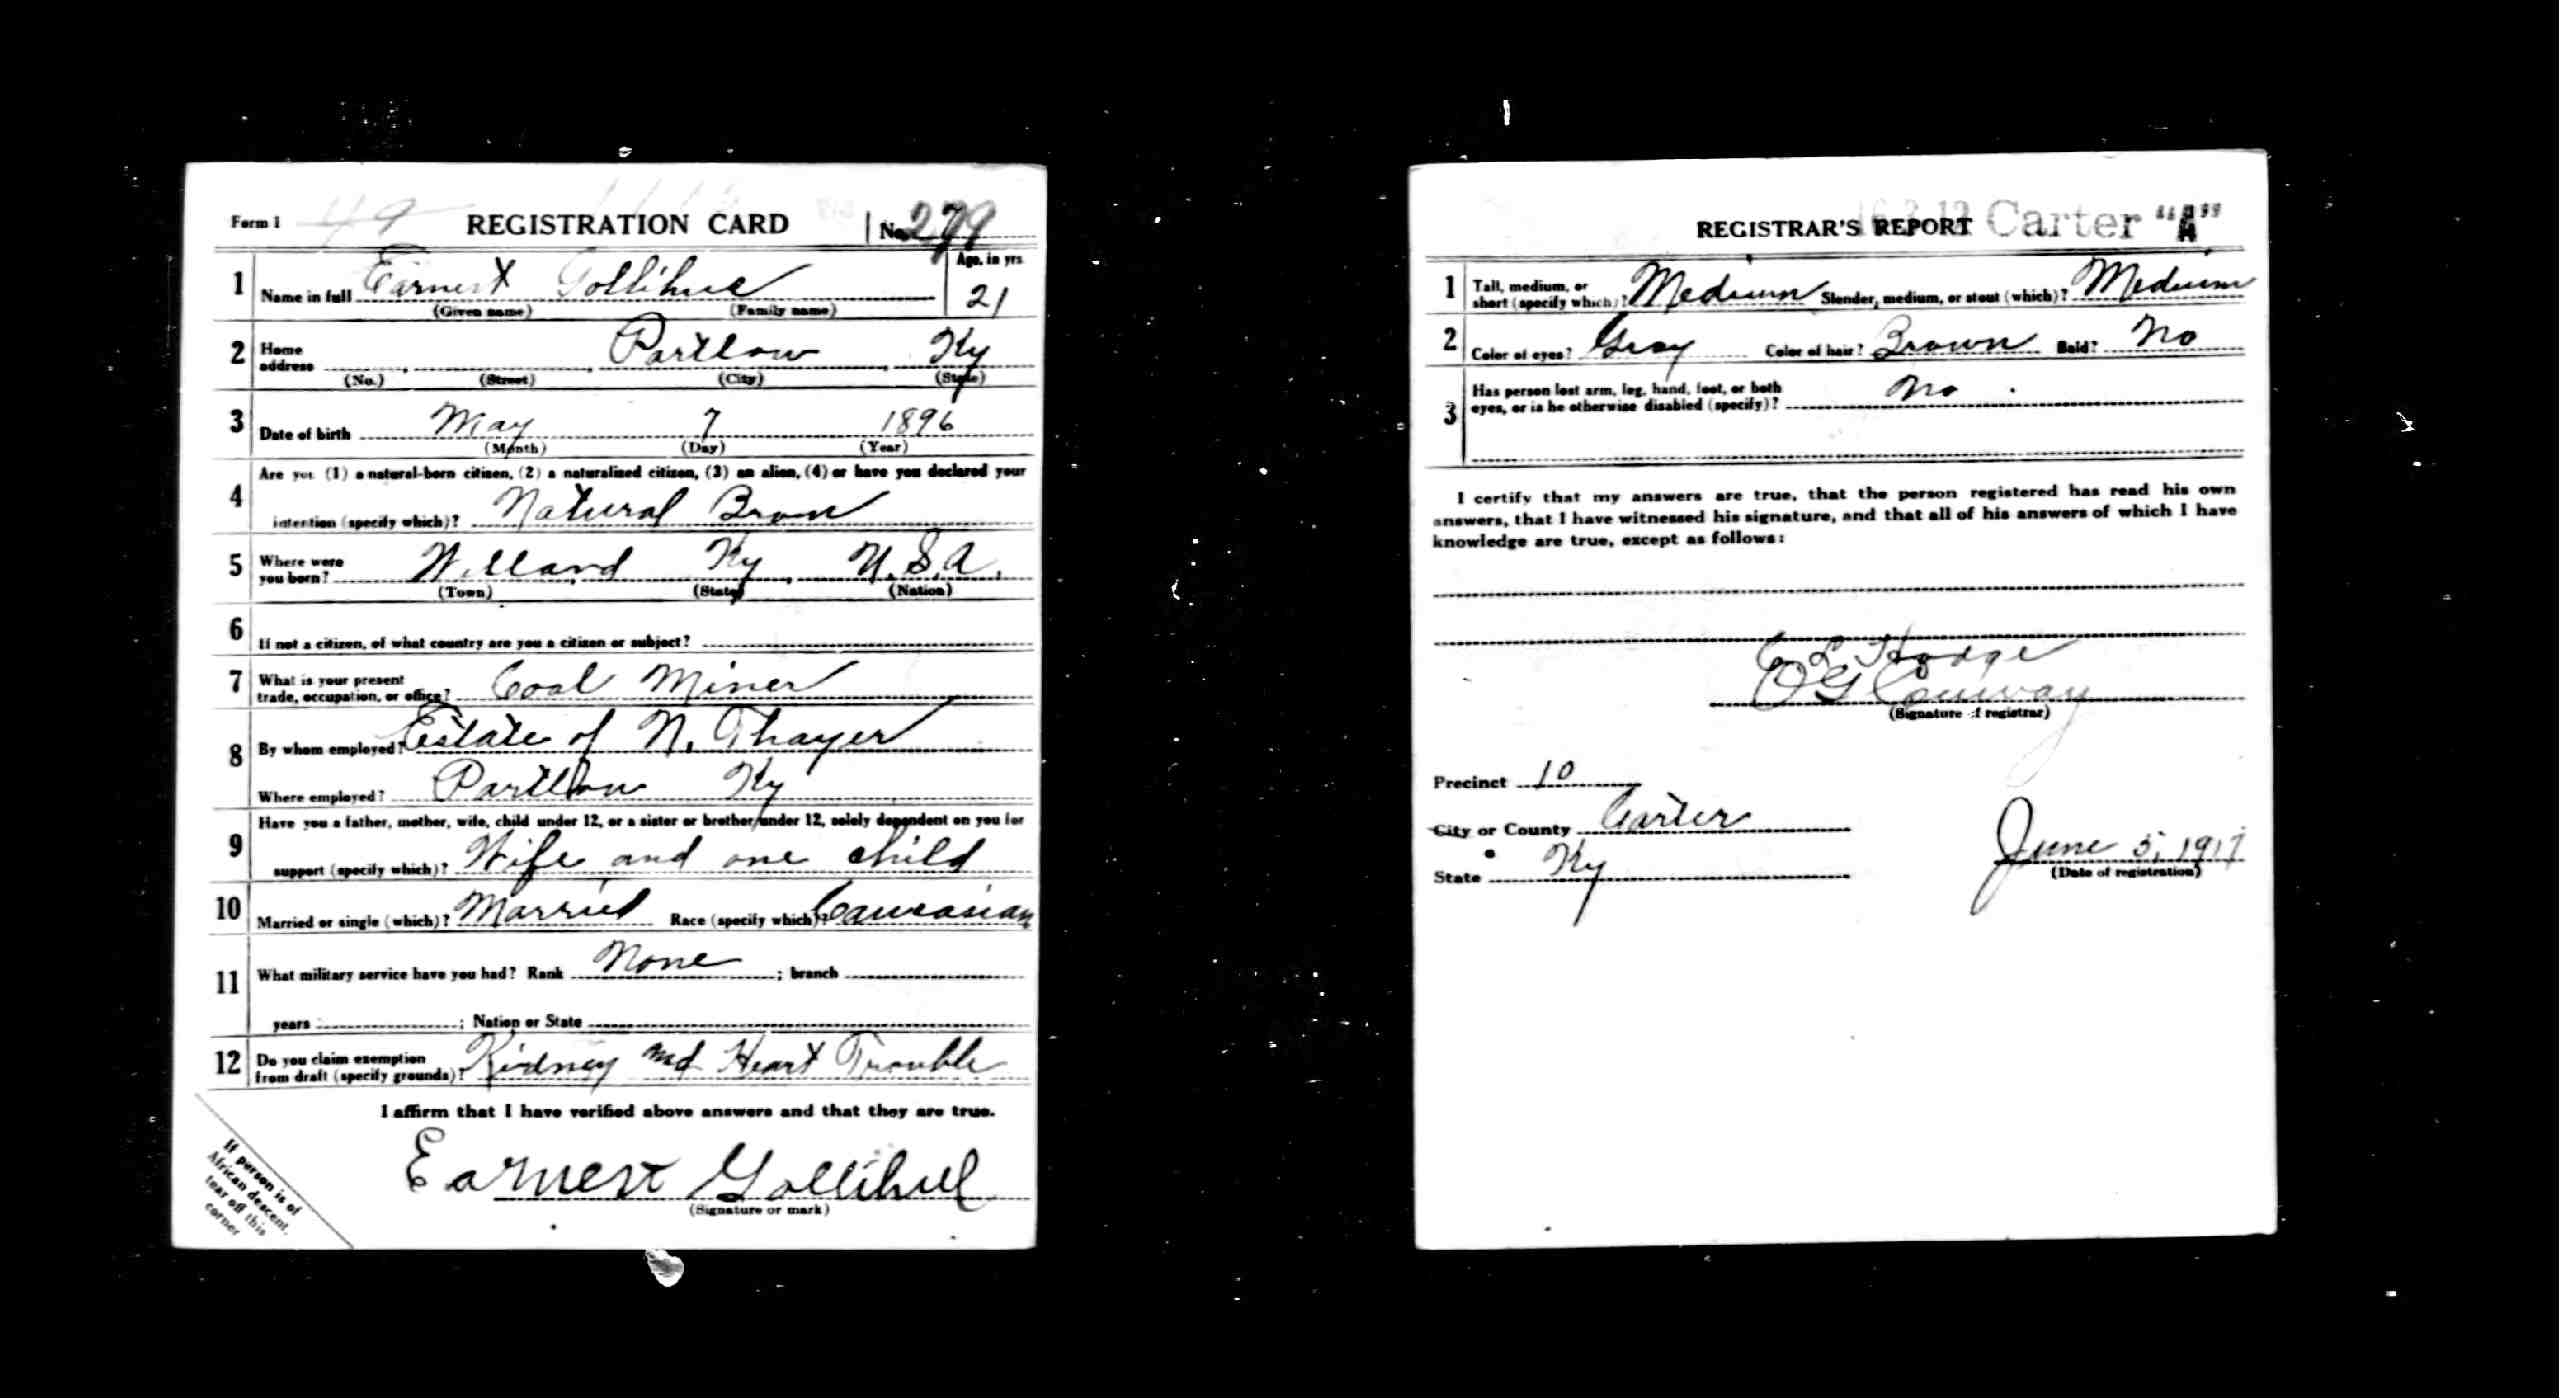 Form 1 49 REGISTRATION CARD No. 279
1 Name in full Earnest Gollihue Age, in yrs 21
(Given name) (Family name)
2 Home address Partlow Ky
(No.) (Street) (City) (State)
3 Date of birth May 7 1896
(Month) (Day) (Year)
4 Are you (1) a natural-born citizen, (2) a naturalized citizen, (3) an alien, (4) or have you declared your
intention (specify which)? Natural Bron
5 Where were you born? Willard Ky U.S.A.
(Town) (State) (Nation)
6 If not a citizen, of what country are you a citizen or subject?
7 What is your present trade, occupation, or office? Coal Miner
8 By whom employed? Estate of N. Thayer
Where employed? Partlow Ky
9 Have you a father, mother, wife, child under 12, or a sister or brother under 12, solely dependent on you for
support (specify which)? Wife and one child
10 Married or single (which)? Married Race (specify which)? Caucasian
11 What military service have you had? Rank None ; branch
years ; Nation or State
12 Do you claim exemption from draft (specify grounds)? Kidney and Heart Trouble
I affirm that I have verified above answers and that they are true.
Earnest Gollihue
(Signature or mark)
If person is of
African descent,
tear off this
corner
REGISTRAR'S REPORT Carter "A"
1 Tall, medium, or short (specify which)? Medium Slender, medium, or stout (which)? Medium
2 Color of eyes? Gray Color of hair? Brown Bald? No
3 Has person lost arm, leg, hand, foot, or both
eyes, or is he otherwise disabled (specify)? No
I certify that my answers are true, that the person registered has read his own
answers, that I have witnessed his signature, and that all of his answers of which I have
knowledge are true, except as follows:
C L Hodge
O G Conway
(Signature of registrar)
Precinct 10
City or County Carter
State Ky
June 5, 1917
(Date of registration)